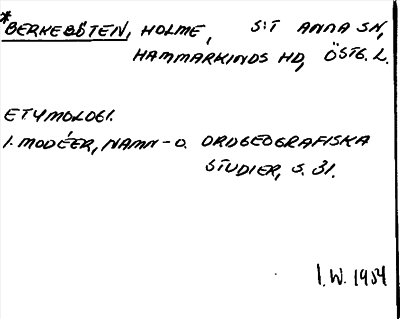 *BERKEBÖTEN, HOLME, S:T ANNA SN,
HAMMARKINDS HD, ÖSTG. L.
ETYMOLOGI.
I. MODÉER, NAMN- O. ORDGEOGRAFISKA
STUDIER, S. 31.
I.W. 1954